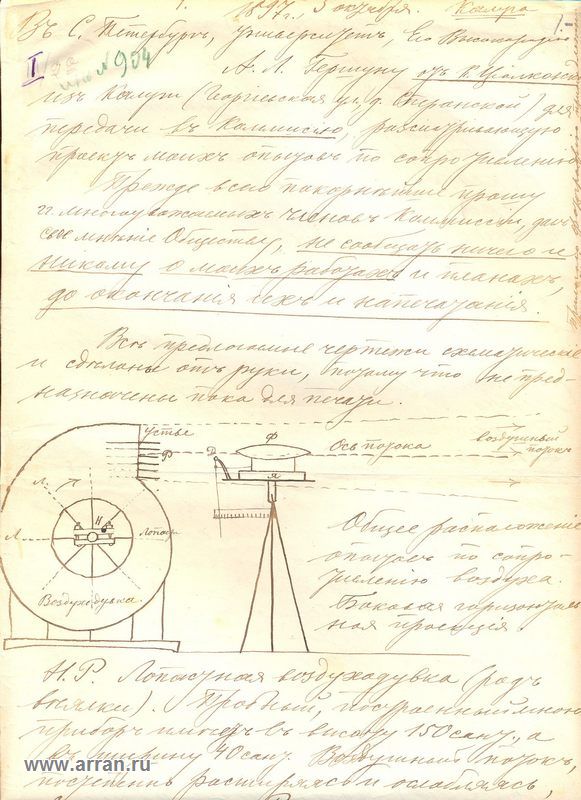 1.
1897 г. 3 октября. Калуга
1-
Въ С. Петербургъ, Университетъ, Его Высокородію
I
№ 904
А. Л. Гершуну отъ К. Ціолковск
изъ Калуги (Георгіевская ул. д. Сперанской) для
передачи въ Коммиссію, разсматривающую
проектъ моихъ опытовъ по сопротивленію
Прежде всего покорнѣйше прошу
гг. многоуважаемыхъ членовъ Коммиссіи, давъ
свое мнѣніе Обществу, не сообщать ничего и
никому о моихъ работахъ и планахъ,
до окончанія ихъ и напечатанія.
Всѣ предлагаемые чертежи схематические
и сдѣланы отъ руки, потому что не пред-
назначены пока для печати.
Устье
Р
Д
Ф
Я
Ось потока
Воздушный
потокъ
Л
Л
И
Лопасть
Воздуходувка
Общее расположеніе
опытовъ по сопро-
тивленію воздуха.
Боковая горизонталь-
ная проекція.
Н.Р. Лопастная воздуходувка (родъ
вѣялки). Пробный, построенный мною
приборъ имѣетъ въ высоту 150 сант., а
въ ширину 40 сант. Воздушный потокъ,
постепенно расширяясь и ослабляясь,
www.arran.ru